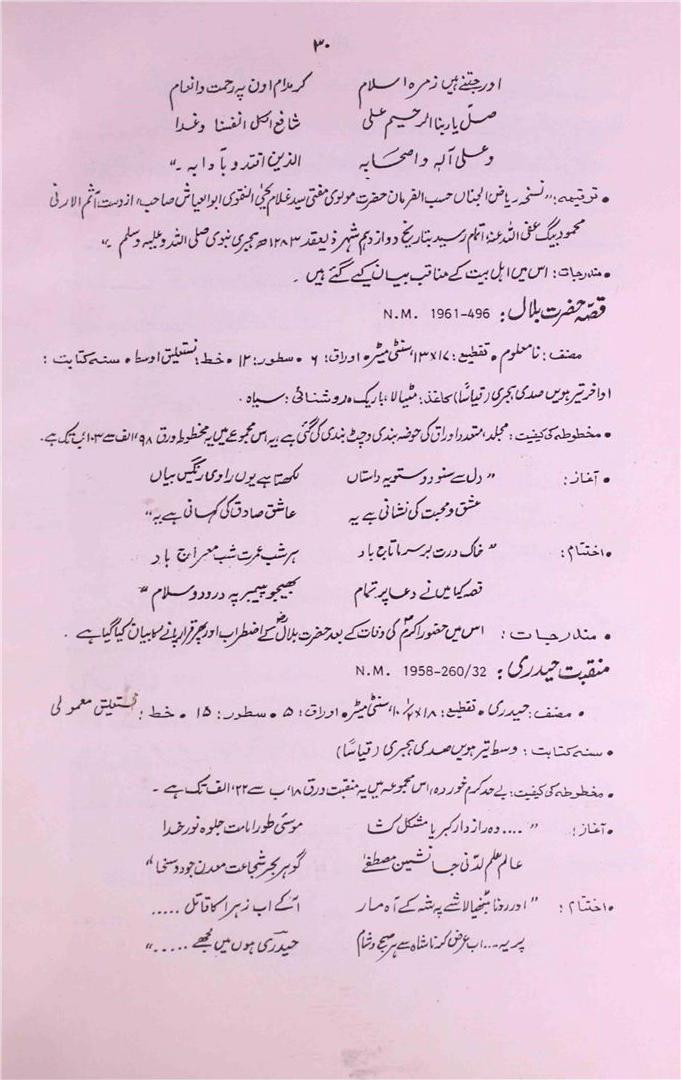 ۳۰
اور جتنے ہیں زمرہ اسلام کر مدام اون پہ رحمت و انعام
صلّ یا ربنا الرحیم علی شافع اسکن انفسنا و غدا
و علی آلہٖ و اصحابہٖ الذین اقتدوا بآدابہ ۔"
• ترقیمہ: "نسخہ ریاض الجناں حسب الفرمان حضرت مولوی مفتی سید غلام یحییٰ النقوی ابوالعیاش صاحب، از دست آثم الارثی
محمود بیگ عفی اللہ عنہ، اتمام رسید بتاریخ دواز دہم شہر ذیقعد ۱۲۸۳ھ ہجری نبوی صلی اللہ و علیہ وسلم ۔"
• مندرجات: اس میں اہل بیت کے مناقب بیان کیے گئے ہیں ۔
قصّہ حضرت بلال: N.M. 1961-496
• مصنف: نامعلوم • تقطیع: ۱۷×۱۳ سنٹی میٹر • اوراق: ۶ • سطور: ۱۲ • خط: نستعلیق اوسط • سنہ کتابت:
اواخر تیرہویں صدی ہجری (قیاساً) کاغذ: مٹیالا، باریک • روشنائی: سیاہ •
• مخطوطہ کی کیفیت: مجلد، متعدد اوراق کی حوضہ بندی و چٹ بندی کی گئی ہے، یہ اس مجموعے میں یہ مخطوط ورق ۹۸، الف سے ۱۰۳ ب تک ہے۔
• آغاز: "دل سے سنو دوستو یہ داستاں لکھتا ہے یوں راوی رنگیں بیاں
عشق و محبت کی نشانی ہے یہ عاشق صادق کی کہانی ہے یہ"
• اختتام: "خاک درت بر سر ما تاج باد ہر شب عمرت شب معراج باد
قصہ کیا میں نے دعا پر تمام بھیجو پیمبر پہ درود و سلام"
• مندرجات: اس میں حضور اکرمؐ کی وفات کے بعد حضرت بلالؓ کے اضطراب اور پھر قرار پانے کا بیان کیا گیا ہے ۔
منقبت حیدری: N.M. 1958-260/32
• مصنف: حیدری • تقطیع: ۱۸×۱۰ سنٹی میٹر • اوراق: ۵ • سطور: ۱۵ • خط: نستعلیق معمولی
• سنہ کتابت: وسط تیرہویں صدی ہجری (قیاساً)
• مخطوطہ کی کیفیت: بے حد کرم خوردہ، اس مجموعہ میں یہ منقبت ورق ۱۸، ب سے ۲۲، الف تک ہے ۔
• آغاز: ".... وہ رازدار کبریا مشکل کشا موسیٰ طور امامت جلوہ نور خدا
عالم علم لدنی جانشین مصطفیٰ گوہر بحر شجاعت معدن جود و سخا"
• اختتام: "اور رونا لاشے پہ شہ کے آہ مار آ کے اب زہرا کا قاتل .....
پر یہ... اب عرض کرنا شاہ سے ہر صبح و شام حیدری ہوں میں مجھے ....."